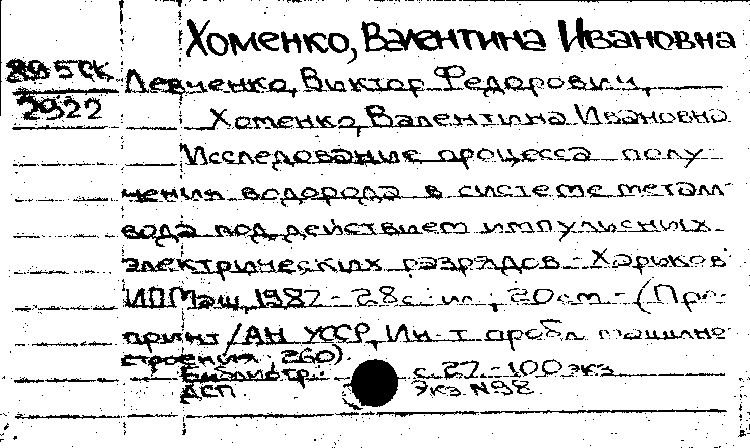 Хоменко, Валентина Ивановна
89-5ТК Левченко, Виктор Федорович,
2922
Хоменко, Валентина Ивановна
Исследование процесса полу-
чения водорода в системе металл-
вода под действием импульсных
электрических разрядов - Харьков
ИПМаш, 1987 - 28с. ил.; 20см - (Пре-
принт / АН УССР, Ин-т пробл. машино-
строения 260).
Библиогр.: с. 27. - 100 экз
ДСП Экз. N 98